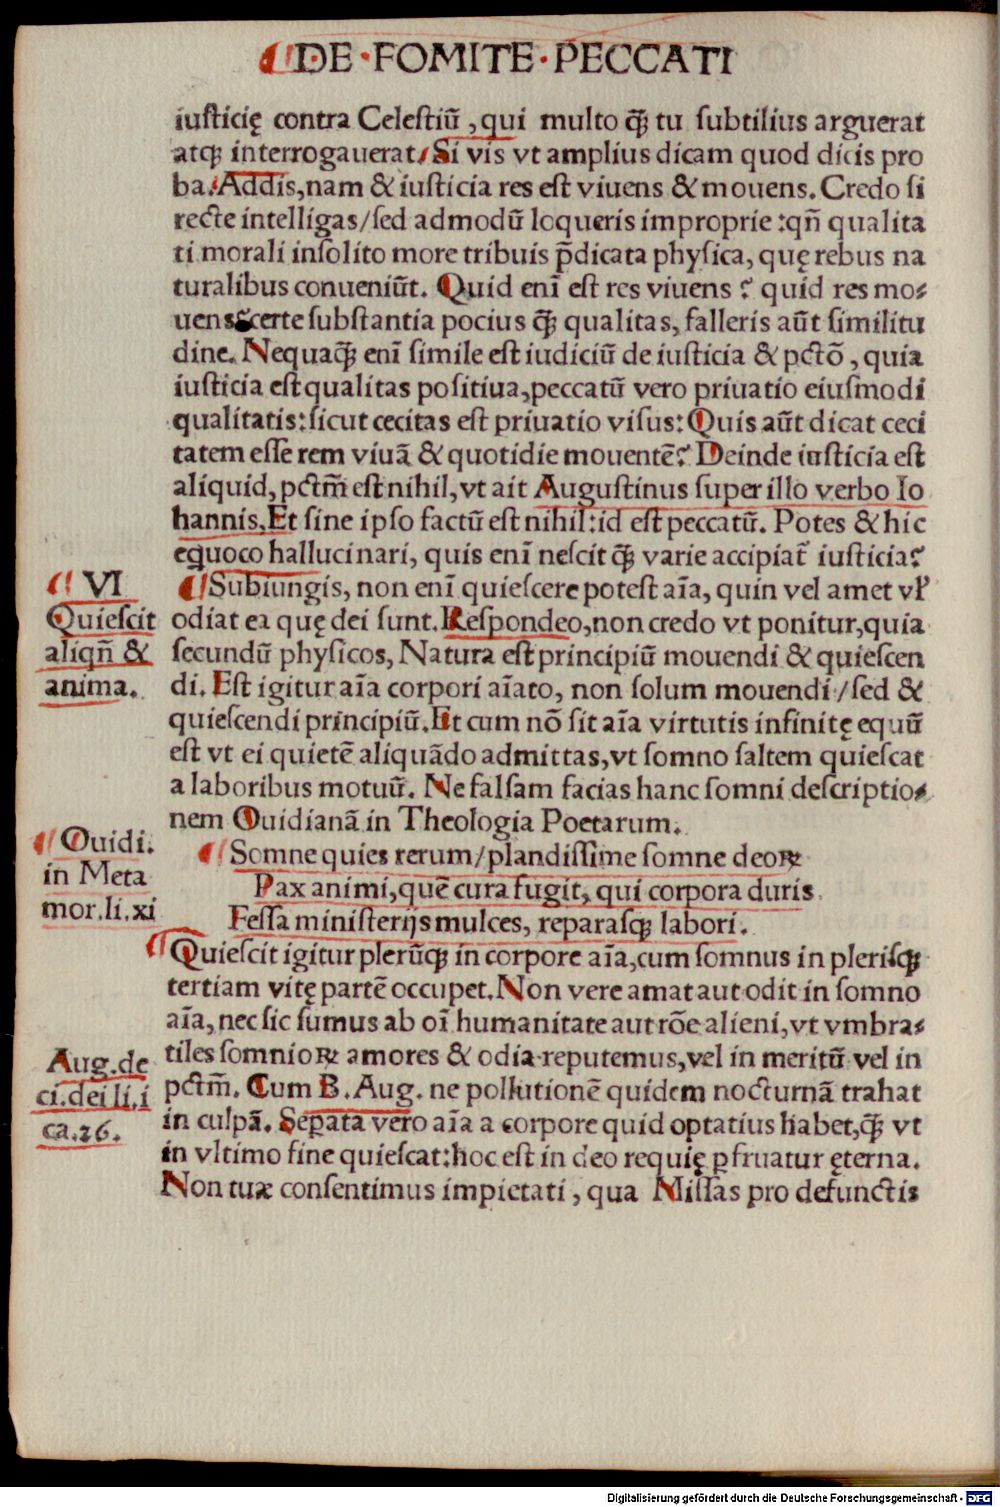 DE·FOMITE·PECCATI
iusticię contra Celestiū, qui multo q̃ꝫ tu subtilius arguerat
atqꝫ interrogauerat/Si vis vt amplius dicam quod dicis pro
ba. Addis, nam & iusticia res est viuens & mouens. Credo si
recte intelligas/sed admodū loqueris improprie:qñ qualita
ti morali insolito more tribuis p̄dicata physica, quę rebus na
turalibus conueniūt. Quid enī est res viuens? quid res mo⸗
uens?certe substantia pocius q̃ꝫ qualitas, falleris aūt similitu
dine. Nequaq̃ꝫ enī simile est iudiciū de iusticia & pctō, quia
iusticia est qualitas positiua, peccatū vero priuatio eiusmodi
qualitatis: sicut cecitas est priuatio visus: Quis aūt dicat ceci
tatem esse rem viuā & quotidie mouentē? Deinde iusticia est
aliquid, pctm̄ est nihil, vt ait Augustinus super illo verbo Io
hannis. Et sine ipso factū est nihil: id est peccatū. Potes & hic
equoco hallucinari, quis enī nescit q̃ꝫ varie accipiat̄ iusticia?
VI
Quiescit
aliqñ &
anima.
Subiungis, non enī quiescere potest aīa, quin vel amet vł
odiat ea quę dei sunt. Respondeo, non credo vt ponitur, quia
secundū physicos, Natura est principiū mouendi & quiescen
di. Est igitur aīa corpori aīato, non solum mouendi/sed &
quiescendi principiū. Et cum nō sit aīa virtutis infinitę equū
est vt ei quietē aliquādo admittas, vt somno saltem quiescat
a laboribus motuū. Ne falsam facias hanc somni descriptio⸗
nem Ouidianā in Theologia Poetarum.
Ouidi.
in Meta
mor.li.xi
Somne quies rerum/plandissime somne deoꝝ
Pax animi, quē cura fugit, qui corpora duris
Fessa ministerijs mulces, reparasqꝫ labori.
Quiescit igitur plerūqꝫ in corpore aīa, cum somnus in plerisqꝫ
tertiam vitę partē occupet. Non vere amat aut odit in somno
aīa, nec sic sumus ab oī humanitate aut rōe alieni, vt vmbra⸗
tiles somnioꝝ amores & odia reputemus, vel in meritū vel in
pctm̄. Cum B. Aug. ne pollutionē quidem nocturnā trahat
in culpā. Seꝑata vero aīa a corpore quid optatius habet, q̃ꝫ vt
in vltimo fine quiescat: hoc est in deo requię ꝑfruatur ęterna.
Non tuæ consentimus impietati, qua Missas pro defunctis
Aug.de
ci.dei li.i
ca.26.
Digitalisierung gefördert durch die Deutsche Forschungsgemeinschaft - DFG